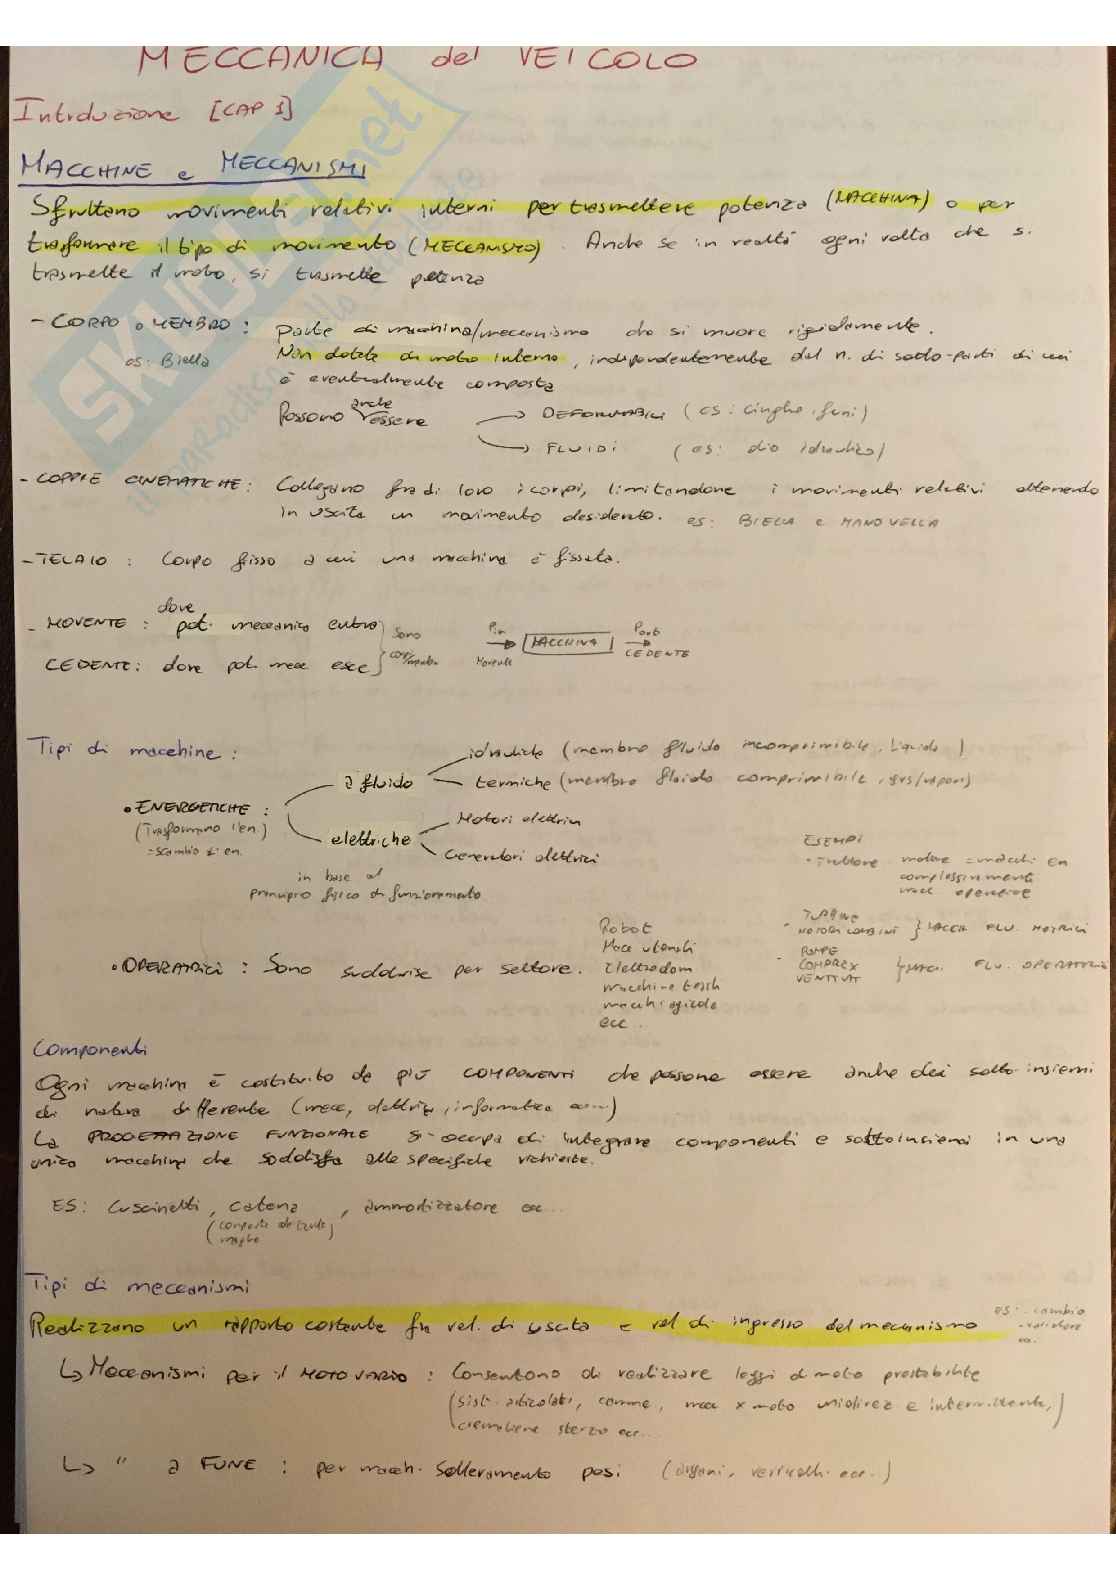 MECCANICA del VEICOLO
Introduzione [CAP 1]
MACCHINE e MECCANISMI
Sfruttano movimenti relativi interni per trasmettere potenza (MACCHINA) o per
trasformare il tipo di movimento (MECCANISMO). Anche se in realtà ogni volta che si
trasmette il moto, si trasmette potenza
- CORPO o MEMBRO: parte di macchina/meccanismo che si muove rigidamente.
es: Biella Non dotate di moto interno, indipendentemente dal n. di sotto-parti di cui
è eventualmente composta
Possono anche essere → DEFORMABILI (es: cinghie, funi)
→ FLUIDI (es: olio idraulico)
- COPPIE CINEMATICHE: Collegano fra di loro i corpi, limitandone i movimenti relativi ottenendo
in uscita un movimento desiderato. es: BIELLA e MANOVELLA
- TELAIO: Corpo fisso a cui una macchina è fissata.
- MOVENTE: dove pot. meccanica entra
CEDENTE: dove pot. mecc esce
Sono corpi/membri
Pin → MACCHINA → Pout
Movente CEDENTE
Tipi di macchine:
idrauliche (membro fluido incomprimibile, liquido)
a fluido
termiche (membro fluido comprimibile, gas/vapori)
• ENERGETICHE:
(Trasformano l'en.)
=scambio di en.
Motori elettrici
elettriche
Generatori elettrici
in base al
principio fisico di funzionamento
ESEMPI
- Trattore motore = macchi en
complessivamente
macc operatrice
TURBINE
- MOTORI COMBINI } MACCH FLU. MOTRICI
- POMPE
COMPREX } MACC. FLU. OPERATRICI
VENTILAT
• OPERATRICI: Sono suddivise per settore.
Robot
Macc utensili
Elettrodom
macchine tessili
macchi agricole
ecc..
Componenti
Ogni macchina è costituito da più COMPONENTI che possono essere anche dei sotto-insiemi
di natura differente (mecc, elettrici, informatica ecc...)
La PROGETTAZIONE FUNZIONALE si occupa di integrare componenti e sottoinsiemi in una
unica macchina che soddisfa alle specifiche richieste.
ES: Cuscinetti, catena, ammortizzatore ecc...
(composta da tante
maglie)
Tipi di meccanismi
Realizzano un rapporto costante fra vel. di uscita e vel di ingresso del meccanismo
es: - cambio
- riduttore
ecc.
↳ Meccanismi per il MOTO VARIO: Consentono di realizzare leggi di moto prestabilite
(sist. articolati, camme, mecc x moto unidirez e intermittente,
cremagliere sterzo ecc...)
↳ " a FUNE: per macch. Sollevamento pesi (argani, verricelli ecc..)